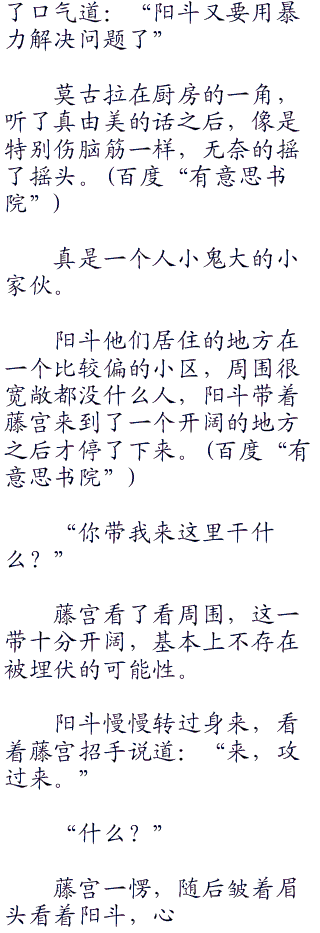 了口气道：“阳斗又要用暴
力解决问题了”
莫古拉在厨房的一角，
听了真由美的话之后，像是
特别伤脑筋一样，无奈的摇
了摇头。(百度“有意思书
院”)
真是一个人小鬼大的小
家伙。
阳斗他们居住的地方在
一个比较偏的小区，周围很
宽敞都没什么人，阳斗带着
藤宫来到了一个开阔的地方
之后才停了下来。(百度“有
意思书院”)
“你带我来这里干什
么？”
藤宫看了看周围，这一
带十分开阔，基本上不存在
被埋伏的可能性。
阳斗慢慢转过身来，看
着藤宫招手说道：“来，攻
过来。”
“什么？”
藤宫一愣，随后皱着眉
头看着阳斗，心